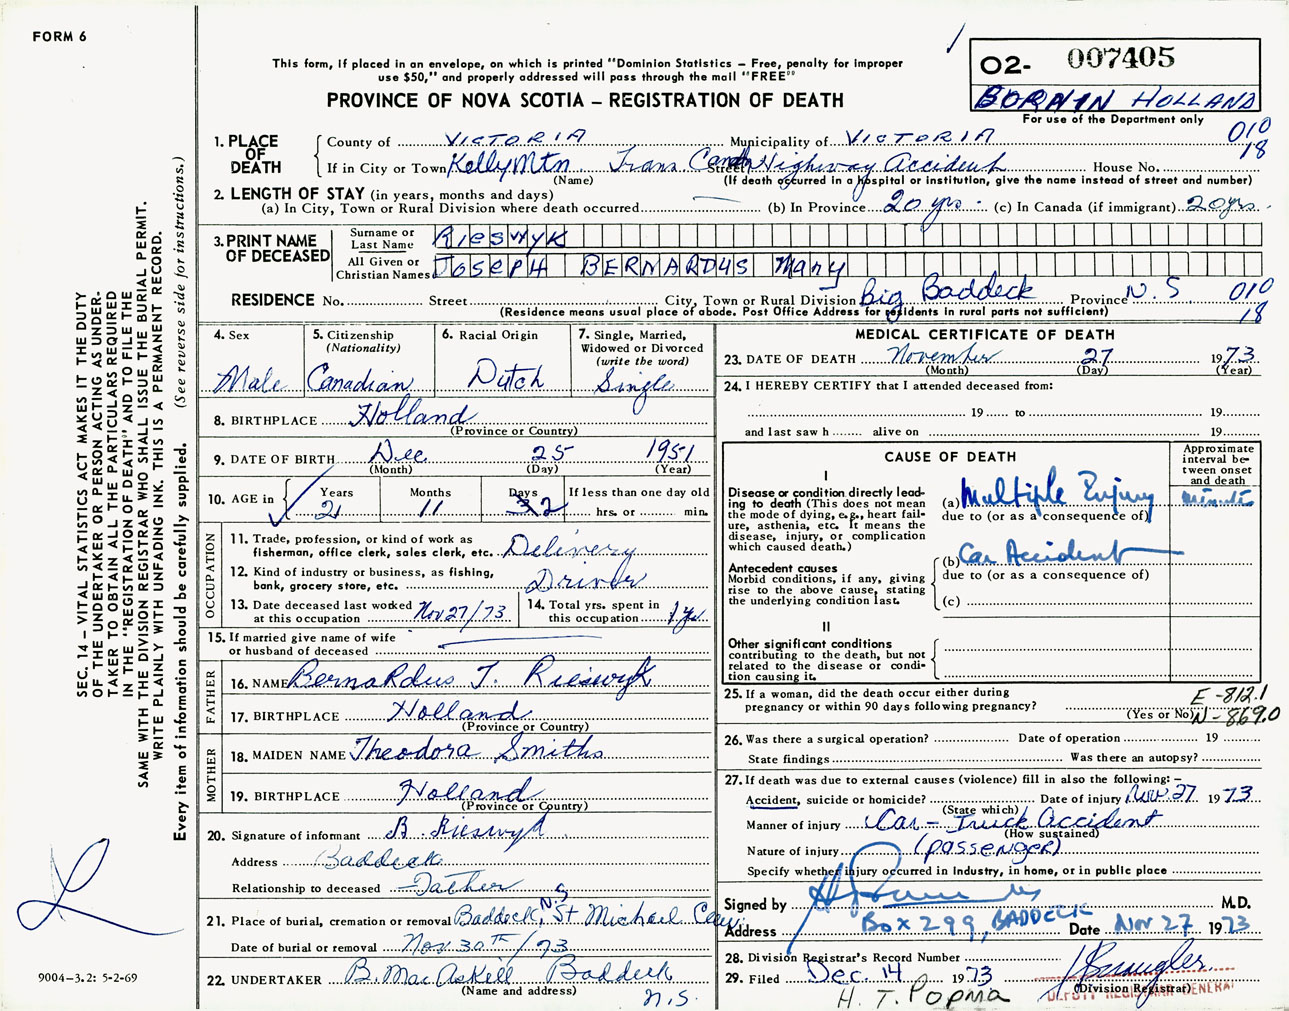 FORM 6
This form, if placed in an envelope, on which is printed "Dominion Statistics – Free, penalty for improper
use $50," and properly addressed will pass through the mail "FREE"
PROVINCE OF NOVA SCOTIA – REGISTRATION OF DEATH
02- 007405
BORN IN HOLLAND
For use of the Department only
010
18
1. PLACE OF DEATH
County of VICTORIA Municipality of VICTORIA
If in City or Town Kelly Mtn. Trans Canada Highway Accident Street House No.
(Name) (If death occurred in a hospital or institution, give the name instead of street and number)
2. LENGTH OF STAY (in years, months and days)
(a) In City, Town or Rural Division where death occurred — (b) In Province 20 yrs. (c) In Canada (if immigrant) 20 yrs.
3. PRINT NAME OF DECEASED
Surname or Last Name RIESWYK
All Given or Christian Names JOSEPH BERNARDUS Mary
RESIDENCE No. Street City, Town or Rural Division Big Baddeck Province N.S 010
(Residence means usual place of abode. Post Office Address for residents in rural parts not sufficient) 18
4. Sex
Male
5. Citizenship
(Nationality)
Canadian
6. Racial Origin
Dutch
7. Single, Married,
Widowed or Divorced
(write the word)
Single
8. BIRTHPLACE Holland
(Province or Country)
9. DATE OF BIRTH Dec 25 1951
(Month) (Day) (Year)
10. AGE in Years 21 Months 11 Days 2 If less than one day old
hrs. or min.
OCCUPATION
11. Trade, profession, or kind of work as
fisherman, office clerk, sales clerk, etc. Delivery
12. Kind of industry or business, as fishing,
bank, grocery store, etc. Driver
13. Date deceased last worked
at this occupation Nov 27/73
14. Total yrs. spent in
this occupation 1 yr
15. If married give name of wife
or husband of deceased
FATHER
16. NAME Bernardus T. Rieswyk
17. BIRTHPLACE Holland
(Province or Country)
MOTHER
18. MAIDEN NAME Theodora Smiths
19. BIRTHPLACE Holland
(Province or Country)
20. Signature of informant B. Rieswyk
Address Baddeck
Relationship to deceased Father
21. Place of burial, cremation or removal Baddeck, N.S St Michael
Date of burial or removal Nov. 30th/73
22. UNDERTAKER B. MacAskill Baddeck
(Name and address) N.S.
MEDICAL CERTIFICATE OF DEATH
23. DATE OF DEATH November 27 1973
(Month) (Day) (Year)
24. I HEREBY CERTIFY that I attended deceased from:
19 to 19
and last saw h alive on 19
CAUSE OF DEATH
Approximate
interval be-
tween onset
and death
I
Disease or condition directly lead-
ing to death (This does not mean
the mode of dying, e.g., heart fail-
ure, asthenia, etc. It means the
disease, injury, or complication
which caused death.)
(a) Multiple Injury minute
due to (or as a consequence of)
Antecedent causes
Morbid conditions, if any, giving
rise to the above cause, stating
the underlying condition last.
(b) Car Accident
due to (or as a consequence of)
(c)
II
Other significant conditions
contributing to the death, but not
related to the disease or condi-
tion causing it.
25. If a woman, did the death occur either during
pregnancy or within 90 days following pregnancy?
(Yes or No)
E-812.1
N-869.0
26. Was there a surgical operation? Date of operation 19
State findings Was there an autopsy?
27. If death was due to external causes (violence) fill in also the following: –
Accident, suicide or homicide? Date of injury Nov. 27 1973
(State which)
Manner of injury Car – Truck Accident
(How sustained)
Nature of injury (passenger)
Specify whether injury occurred in industry, in home, or in public place
Signed by M.D.
Address Box 299, BADDECK Date Nov 27 1973
28. Division Registrar's Record Number
29. Filed Dec. 14 1973
(Division Registrar)
DEPUTY REGISTRAR GENERAL
H. T. Popma
SEC. 14 – VITAL STATISTICS ACT MAKES IT THE DUTY
OF THE UNDERTAKER OR PERSON ACTING AS UNDER-
TAKER TO OBTAIN ALL THE PARTICULARS REQUIRED
IN THE "REGISTRATION OF DEATH" AND TO FILE THE
SAME WITH THE DIVISION REGISTRAR WHO SHALL ISSUE THE BURIAL PERMIT.
WRITE PLAINLY WITH UNFADING INK. THIS IS A PERMANENT RECORD.
Every item of information should be carefully supplied. (See reverse side for instructions.)
9004-3.2: 5-2-69